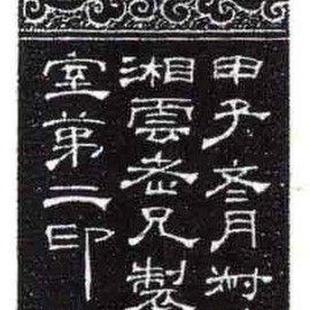 甲子冬月
湘雲老兄製
室第二印